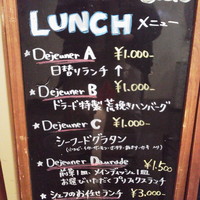 LUNCH メニュー
★Dejeuner A ¥1.000-
日替りランチ ↑
★Dejeuner B ¥1.000-
ドラード特製 荒挽きハンバーグ
★Dejeuner C ¥1.000-
シーフードグラタン
★Dejeuner Daurade ¥1,500
前菜1皿、メインディッシュ1皿
お選びいただくプリフィクスランチ
★シェフのお任せランチ ¥3.000-